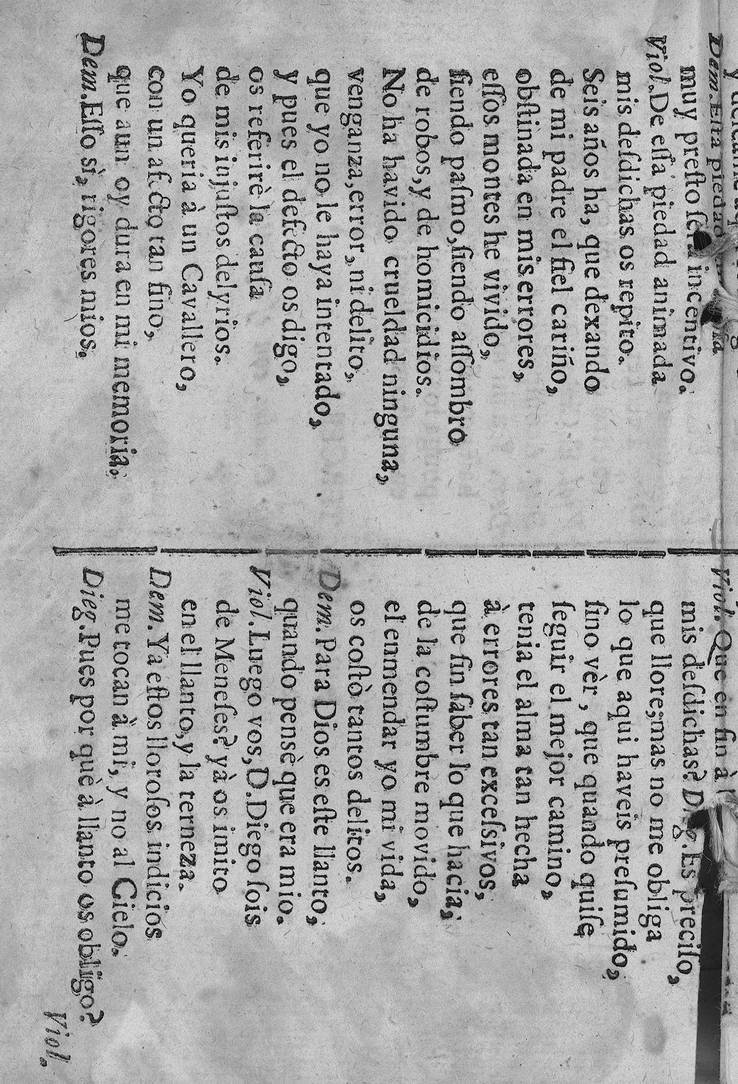 Dem. Esta piedad
muy presto será incentivo.
Viol. De essa piedad animada
mis desdichas os repito.
Seis años ha, que dexando
de mi padre el fiel cariño,
obstinada en mis errores,
essos montes he vivido,
siendo pasmo, siendo assombro
de robos, y de homicidios.
No ha havido crueldad ninguna,
venganza, error, ni delito,
que yo no le haya intentado,
y pues el defecto os digo,
os referirè la causa
de mis injustos delyrios.
Yo queria à un Cavallero,
con un afecto tan fino,
que aun oy dura en mi memoria.
Dem. Esso sì, rigores mios.
Viol. Que en fin à
mis desdichas? Dieg. Es preciso,
que llore; mas no me obliga
lo que aqui haveis presumido,
sino vèr, que quando quise
seguir el mejor camino,
tenia el alma tan hecha
à errores tan excessivos,
que sin saber lo que hacia,
de la costumbre movido,
el enmendar yo mi vida,
os costò tantos delitos.
Dem. Para Dios es este llanto,
quando pensè que era mio.
Viol. Luego vos, D. Diego sois
de Meneses? yà os imito
en el llanto, y la terneza.
Dem. Ya estos llorosos indicios
me tocan à mi, y no al Cielo.
Dieg. Pues por què à llanto os obligo?
Viol.